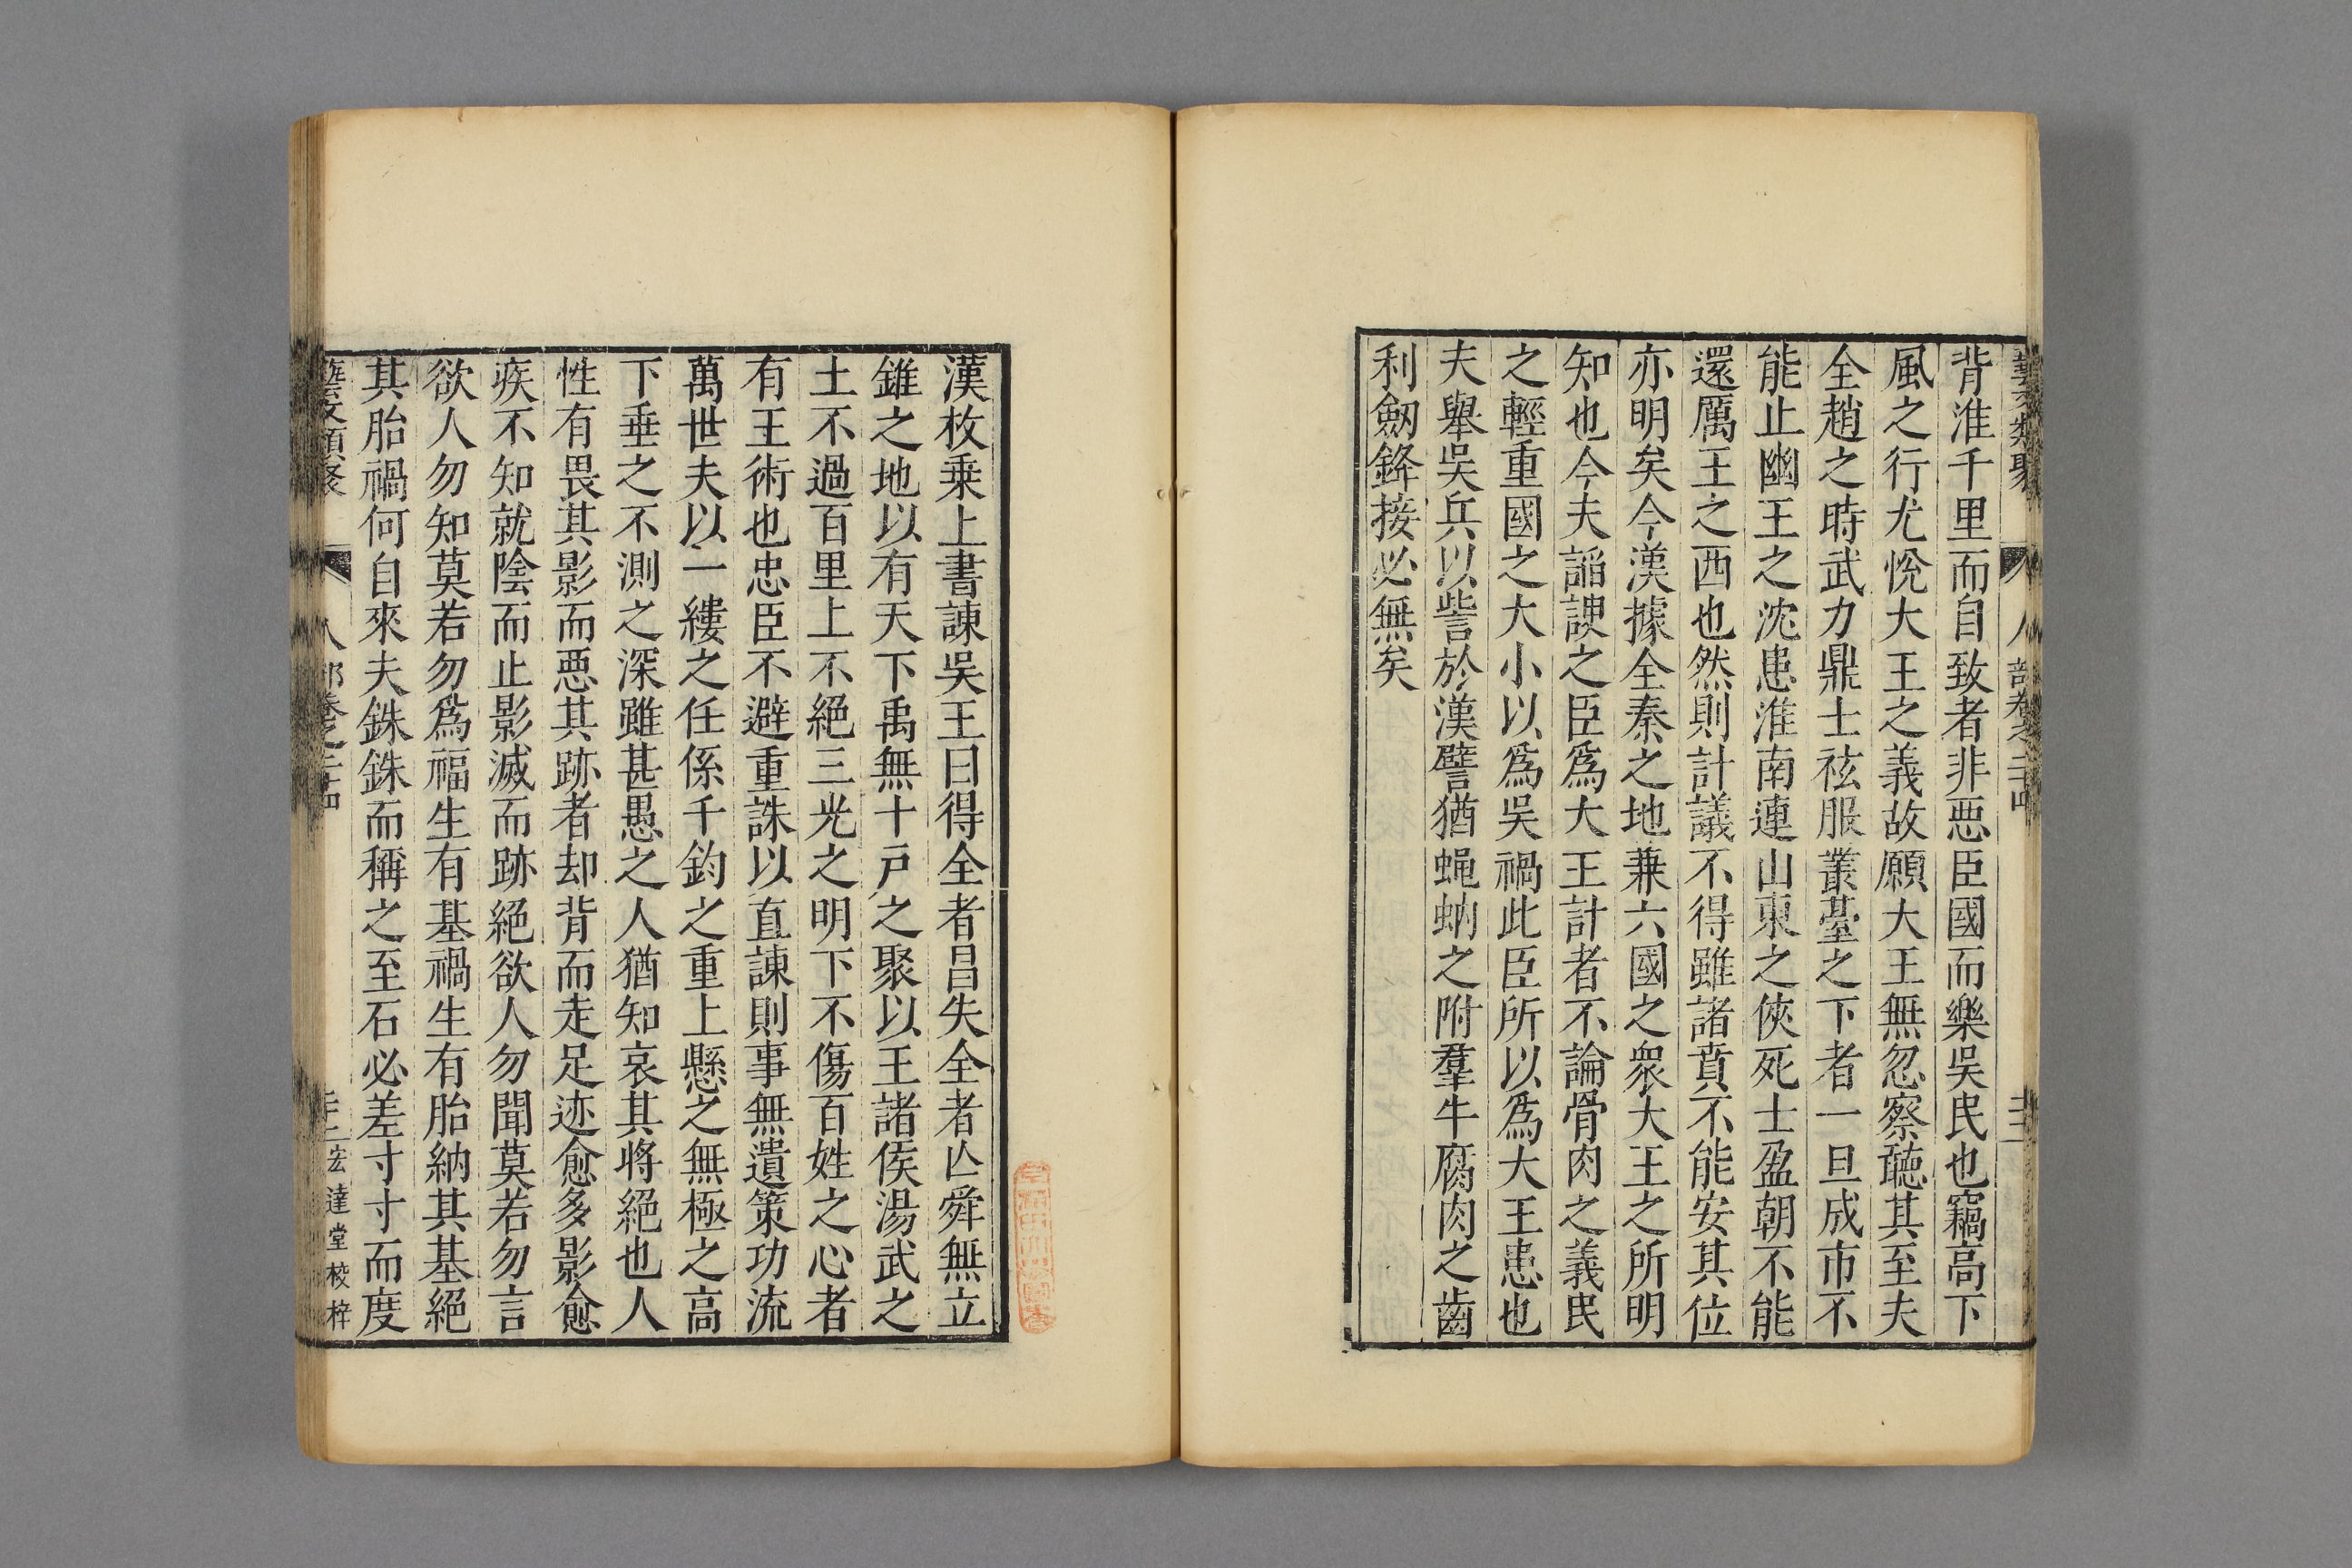 背淮千里而自致者非惡臣國而樂吳民也竊高下
風之行尤悅大王之義故願大王無忽察聽其至夫
全趙之時武力鼎士袨服叢臺之下者一旦成市不
能止幽王之沈患淮南連山東之俠死士盈朝不能
還厲王之西也然則計議不得雖諸賁不能安其位
亦明矣今漢據全秦之地兼六國之衆大王之所明
知也今夫謟諛之臣爲大王計者不論骨肉之義民
之輕重國之大小以爲吳禍此臣所以爲大王患也
夫舉吳兵以訾於漢譬猶蝇蚋之附羣牛腐肉之齒
利劒鋒接必無矣
漢枚乗上書諌吳王曰得全者昌失全者亾舜無立
錐之地以有天下禹無十戸之聚以王諸侯湯武之
土不過百里上不絕三光之明下不傷百姓之心者
有王術也忠臣不避重誅以直諌則事無遺策功流
萬世夫以一縷之任係千鈞之重上懸之無極之高
下垂之不測之深雖甚愚之人猶知哀其將絕也人
性有畏其影而惡其跡者却背而走足迹愈多影愈
疾不知就陰而止影滅而跡絕欲人勿聞莫若勿言
欲人勿知莫若勿爲福生有基禍生有胎納其基絕
其胎禍何自來夫銖銖而稱之至石必差寸寸而度
藝文類聚 人部卷之二十四 宏達堂校梓